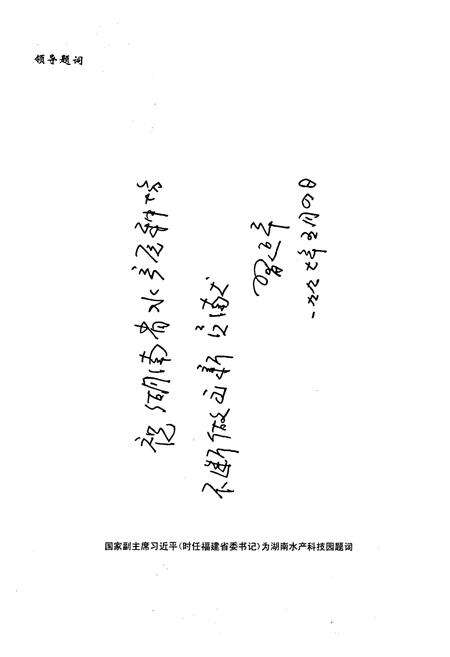 领导题词
祝湖南省水产原种场
不断做出新贡献
习近平
一九九七年五月四日
国家副主席习近平(时任福建省委书记)为湖南水产科技园题词